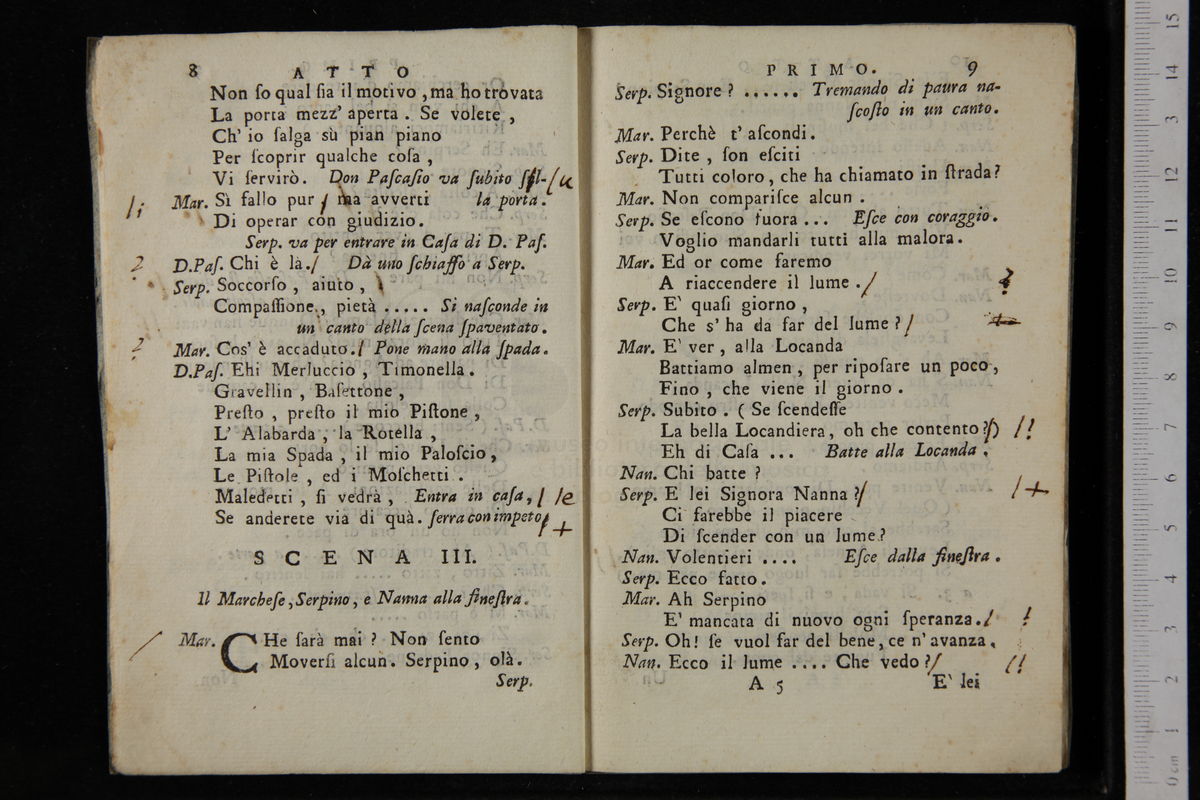 8 ATTO
Non ſo qual ſia il motivo , ma ho trovata
La porta mezz' aperta . Se volete ,
Ch' io ſalga sù pian piano
Per ſcoprir qualche coſa ,
Vi ſervirò. Don Paſcaſio va ſubito
Mar. Sì fallo pur , ma avverti la porta .
Di operar con giudizio.
Serp. va per entrare in Caſa di D. Paſ.
D.Paſ. Chi è là. Dà uno ſchiaffo a Serp.
Serp. Soccorſo , aiuto ,
Compaſſione , pietà ..... Si naſconde in
un canto della ſcena ſpaventato .
Mar. Cos' è accaduto. Pone mano alla ſpada .
D.Paſ. Ehi Merluccio , Timonella .
Gravellin , Baſettone ,
Preſto , preſto il mio Piſtone ,
L' Alabarda , la Rotella ,
La mia Spada , il mio Paloſcio ,
Le Piſtole , ed i Moſchetti .
Maledetti , ſi vedrà , Entra in caſa , e
Se anderete via di quà. ſerra con impeto
SCENA III.
Il Marcheſe , Serpino , e Nanna alla fineſtra .
Mar. CHe ſarà mai ? Non ſento
Moverſi alcun. Serpino , olà.
Serp.
PRIMO. 9
Serp. Signore ? ...... Tremando di paura na-
ſcoſto in un canto.
Mar. Perchè t' aſcondi .
Serp. Dite , ſon eſciti
Tutti coloro , che ha chiamato in ſtrada?
Mar. Non compariſce alcun .
Serp. Se eſcono fuora ... Eſce con coraggio .
Voglio mandarli tutti alla malora .
Mar. Ed or come faremo
A riaccendere il lume .
Serp. E' quaſi giorno ,
Che s' ha da far del lume ?
Mar. E' ver , alla Locanda
Battiamo almen , per ripoſare un poco ,
Fino , che viene il giorno .
Serp. Subito . ( Se ſcendeſſe
La bella Locandiera , oh che contento ?) !
Eh di Caſa ... Batte alla Locanda .
Nan. Chi batte ?
Serp. E lei Signora Nanna ?
Ci farebbe il piacere
Di ſcender con un lume ?
Nan. Volentieri .... Eſce dalla fineſtra .
Serp. Ecco fatto .
Mar. Ah Serpino
E' mancata di nuovo ogni ſperanza . !
Serp. Oh! ſe vuol far del bene , ce n' avanza .
Nan. Ecco il lume .... Che vedo ? !
A 5 E' lei